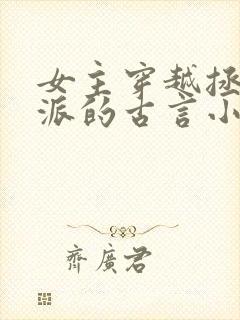 女主穿越拯
派的古言小
齊廣君